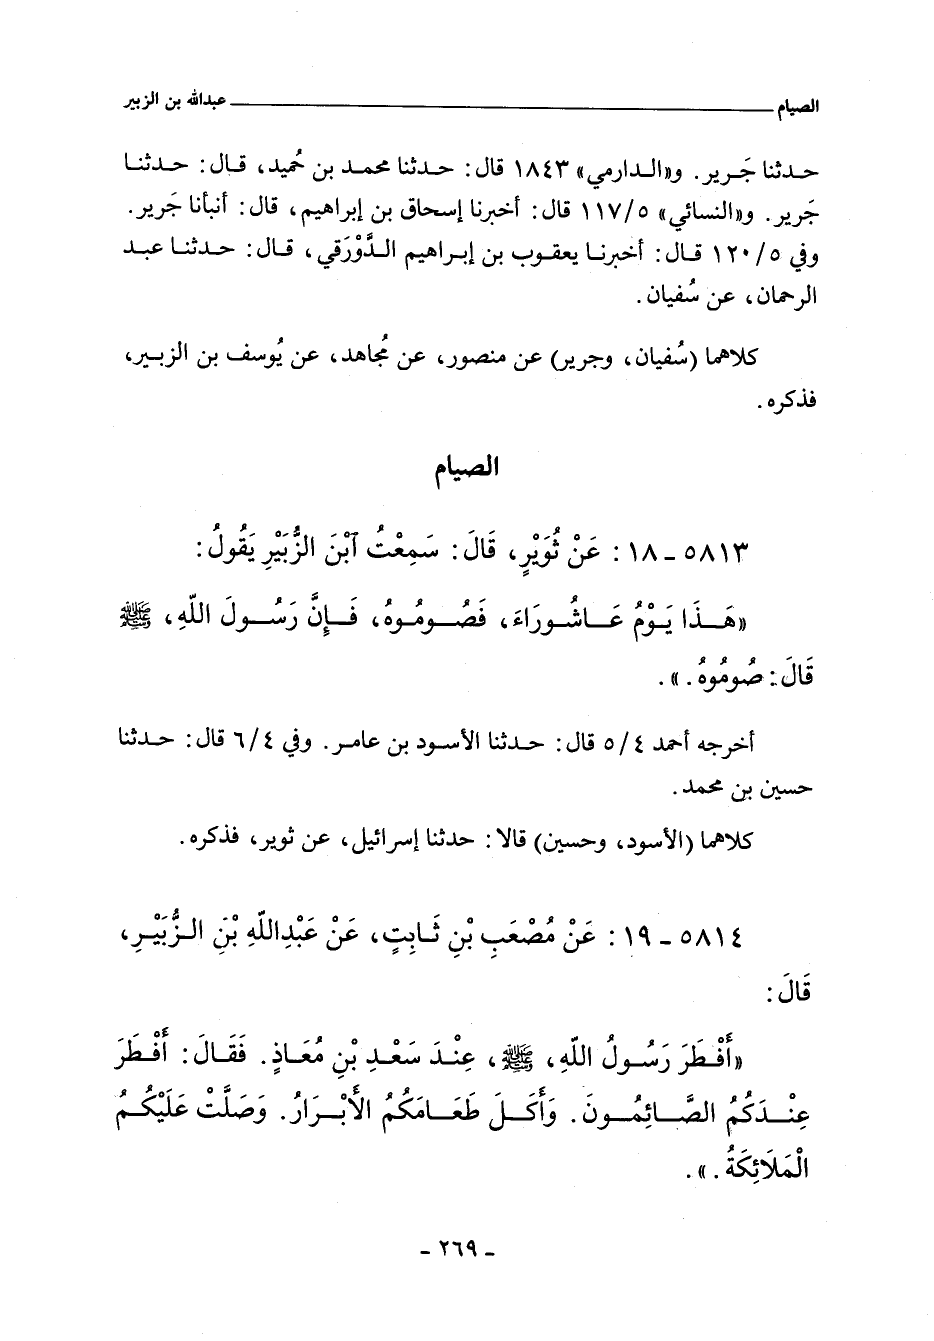 الصيام ــــــ عبدالله بن الزبير
حدثنا جَرير. و«الدارمي» ١٨٤٣ قال: حدثنا محمد بن حُميد، قال: حدثنا
جَرير. و«النسائي» ١١٧/٥ قال: أخبرنا إسحاق بن إبراهيم، قال: أنبأنا جَرير.
وفي ١٢٠/٥ قال: أخبرنا يعقوب بن إبراهيم الدَّوْرَقي، قال: حدثنا عبد
الرحمان، عن سُفيان.
كلاهما (سُفيان، وجرير) عن منصور، عن مُجاهد، عن يُوسف بن الزبير،
فذكره.
الصيام
٥٨١٣ - ١٨: عَنْ ثُوَيْرٍ، قَالَ: سَمِعْتُ آبْنَ الزُّبَيْرِ يَقُولُ:
«هَذَا يَوْمُ عَاشُورَاءَ، فَصُومُوهُ، فَإِنَّ رَسُولَ اللّهِ، ﷺ
قَالَ: صُومُوهُ.».
أخرجه أحمد ٥/٤ قال: حدثنا الأسود بن عامر. وفي ٦/٤ قال: حدثنا
حسين بن محمد.
كلاهما (الأسود، وحسين) قالا: حدثنا إسرائيل، عن ثوير، فذكره.
٥٨١٤ - ١٩: عَنْ مُصْعَبِ بْنِ ثَابِتٍ، عَنْ عَبْدِاللّهِ بْنِ الزُّبَيْرِ،
قَالَ:
«أَفْطَرَ رَسُولُ اللّهِ، ﷺ، عِنْدَ سَعْدِ بْنِ مُعَاذٍ. فَقَالَ: أَفْطَرَ
عِنْدَكُمُ الصَّائِمُونَ. وَأَكَلَ طَعَامَكُمُ الأَبْرَارُ. وَصَلَّتْ عَلَيْكُمُ
الْمَلَائِكَةُ.».
- ٢٦٩ -